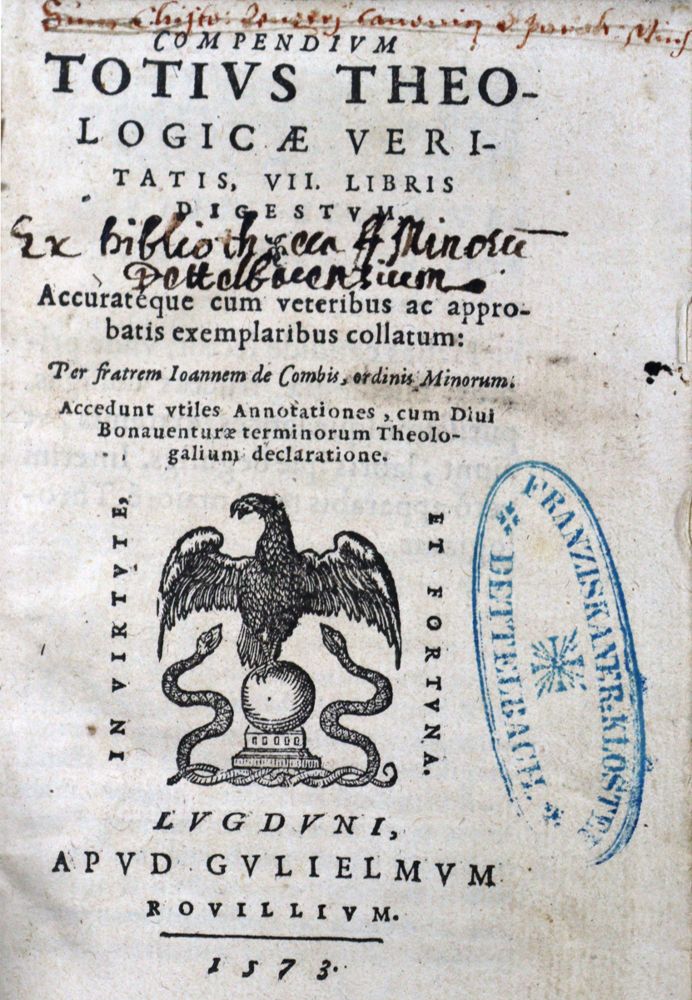 Sum Christo
COMPENDIVM
TOTIVS THEO-
LOGICÆ VERI-
TATIS, VII. LIBRIS
DIGESTVM,
Ex bibliotheca ff Minorū
Dettelbacensium
Accuratéque cum veteribus ac appro-
batis exemplaribus collatum:
Per fratrem Ioannem de Combis, ordinis Minorum.
Accedunt vtiles Annotationes, cum Diui
Bonauenturæ terminorum Theolo-
galium declaratione.
IN VIRTVTE,
ET FORTVNA.
FRANZISKANER-KLOSTER
DETTELBACH.
LVGDVNI,
APVD GVLIELMVM
ROVILLIVM.
1573.